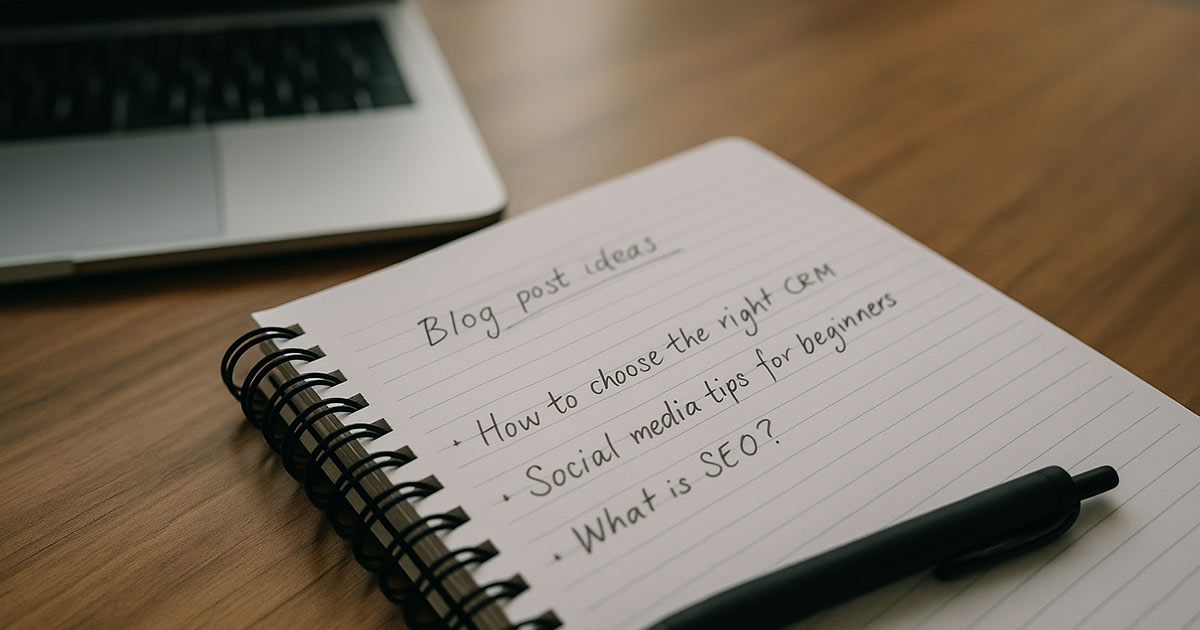 Blog post ideas
· How to choose the right CRM
· Social media tips for beginners
· What is SEO?